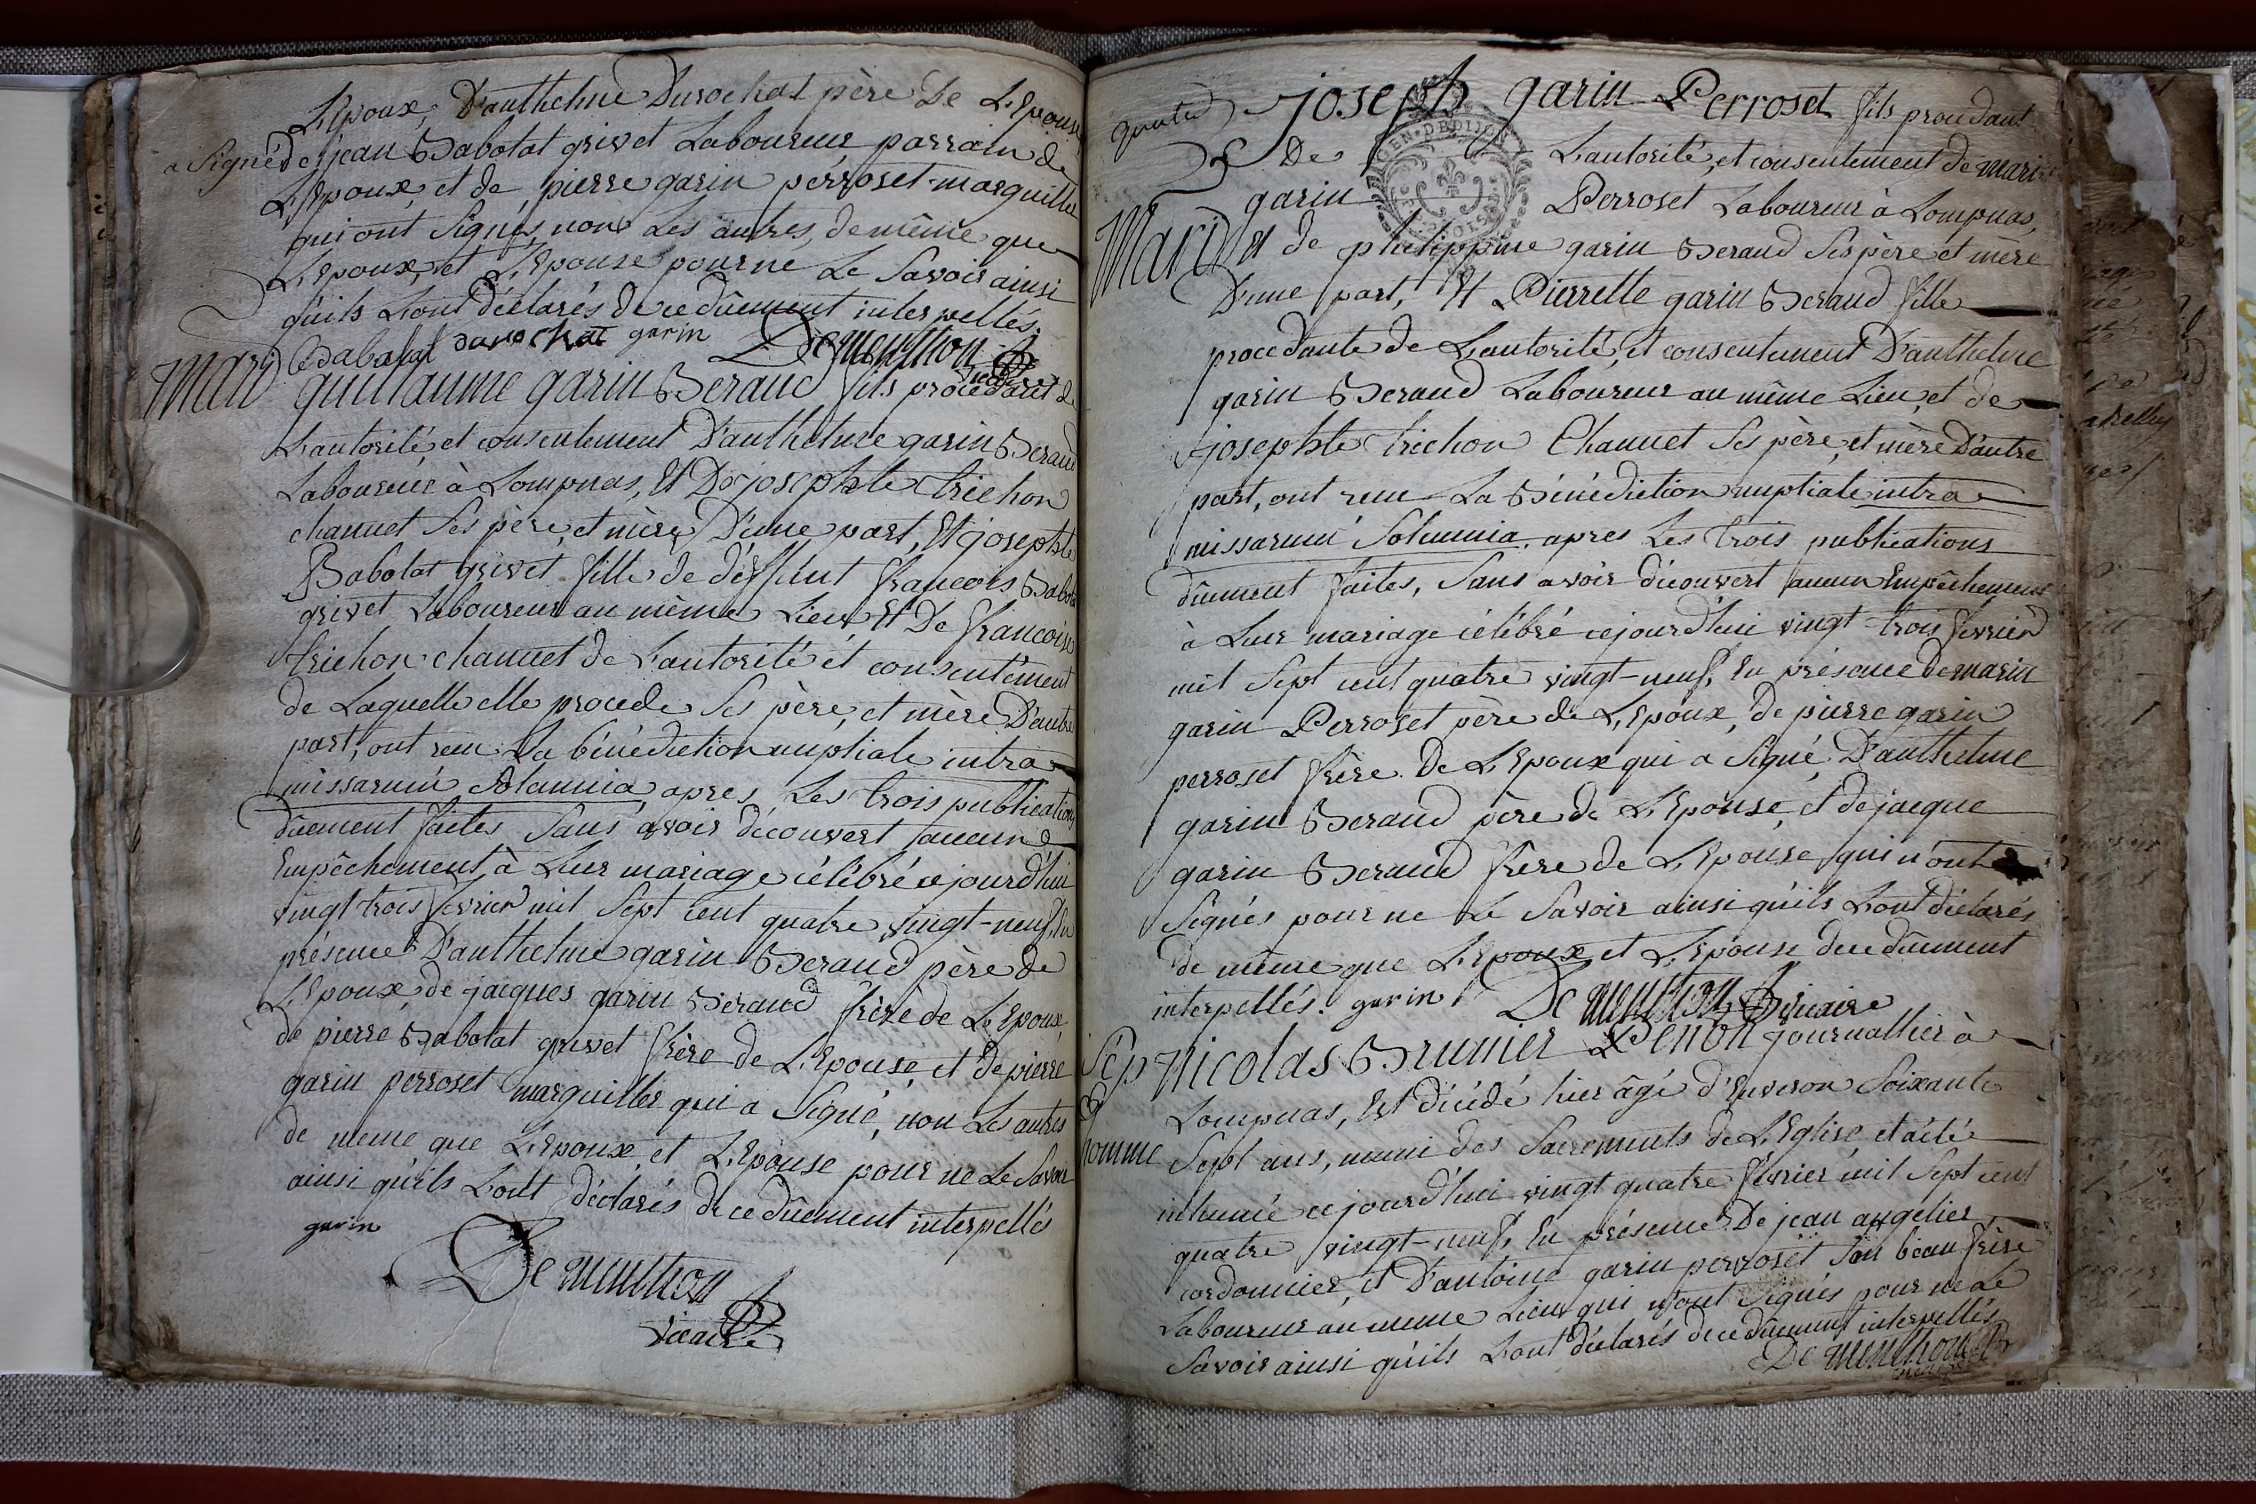 L'Epoux, D'anthelme Durochat père De L'Epouse
a Signé de jean Babolat grivet Laboureur parrain de
L'Epoux, et de pierre garin perroset marguillier
qui ont Signés, non Les autres, de même que
L'Epoux, et L'Epouse pour ne Le Savoir ainsi
qu'ils L'ont déclarés de ce dûement interpellés.
Babolat durochat garin Dementhon vicaire
Mari guillaume garin Beraud fils procedant de
L'autorité, et consentement D'anthelme garin Beraud
Laboureur à Lompnas, Et De josephte trichon
chanuet Ses père, et mère D'une part, Et josephte
Babolat grivet fille de deffunt francois Babolat
grivet Laboureur au même Lieu Et De francoise
trichon chanuet de L'autorité et consentement
de Laquelle elle procede Ses père, et mère D'autre
part, ont reçu La bénédiction nuptiale intra
missarum Solemnia, apres Les trois publications
dûement faites Sans avoir découvert aucun
Empêchement à Leur mariage célébré ce jourd'hui
vingt trois fevrier mil Sept cent quatre vingt-neuf, En
présence D'anthelme garin Beraud père de
L'Epoux, de jacques garin Beraud frère de L'Epoux,
de pierre Babolat grivet frère de L'Epouse, et de pierre
garin perroset marguillier qui a Signé, non Les autres
de meme que L'Epoux, et L'Epouse pour ne Le Savoir
ainsi qu'ils L'ont déclarés de ce dûement interpellés
garin
Dementhon
vicaire
joseph garin Perroset fils procedant
De L'autorité, et consentement de marin
garin Perroset Laboureur à Lompnas,
Mari Et de philippine garin Beraud Ses père et mère
D'une part, Et Pierrette garin Beraud fille
procedante de L'autorité, et consentement D'anthelme
garin Beraud Laboureur au même Lieu, et de
josephte trichon Chanuet Ses père, et mère D'autre
part, ont reçu La Bénédiction nuptiale intra
missarum Solemnia, apres Les trois publications
dûement faites, Sans avoir découvert aucun Empêchement
à Leur mariage célébré ce jourd'hui vingt trois fevrier
mil Sept cent quatre vingt-neuf, En présence de marin
garin Perroset père de L'Epoux, de pierre garin
perroset frère de L'Epoux qui a Signé, D'anthelme
garin Beraud père de L'Epouse, et de jacque
garin Beraud frère de L'Epouse, qui n'ont
Signés pour ne Le Savoir ainsi qu'ils L'ont déclarés
de même que L'Epoux et L'Epouse de ce dûement
interpellés. garin Dementhon vicaire
Sép nicolas Brunier Penon journallier à
Lompnas, Est décédé hier âgé d'Environ Soixante
homme Sept ans, muni des Sacrements de L'Eglise, et a été
inhumé ce jourd'hui vingt quatre fevrier mil Sept cent
quatre vingt-neuf, En présence De jean augelier
cordonnier, et D'antoine garin perroset Son beau frère
Laboureur au meme Lieu qui n'ont Signés pour ne Le
Savoir ainsi qu'ils L'ont déclarés de ce dûement interpellés
De menthon